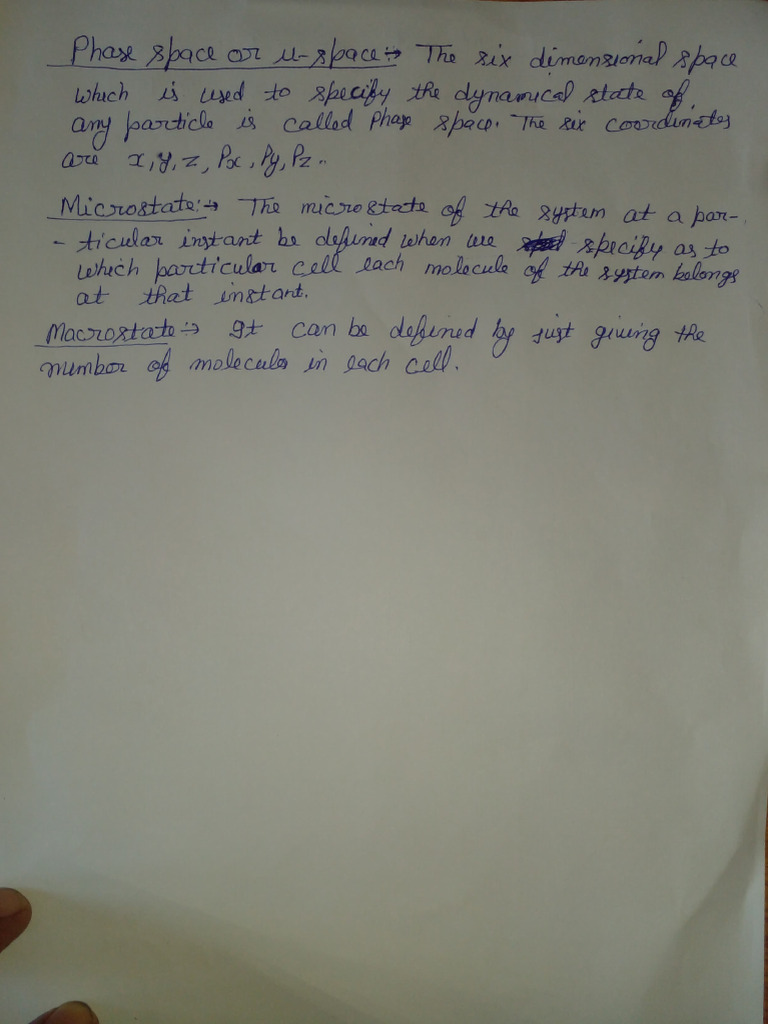 Phase space or μ-space:→ The six dimensional space
which is used to specify the dynamical state of
any particle is called Phase space. The six coordinates
are x, y, z, Px, Py, Pz..
Microstate:→ The microstate of the system at a par-
- ticular instant be defined when we specify as to
which particular cell each molecule of the system belongs
at that instant.
Macrostate:→ It can be defined by just giving the
number of molecules in each cell.